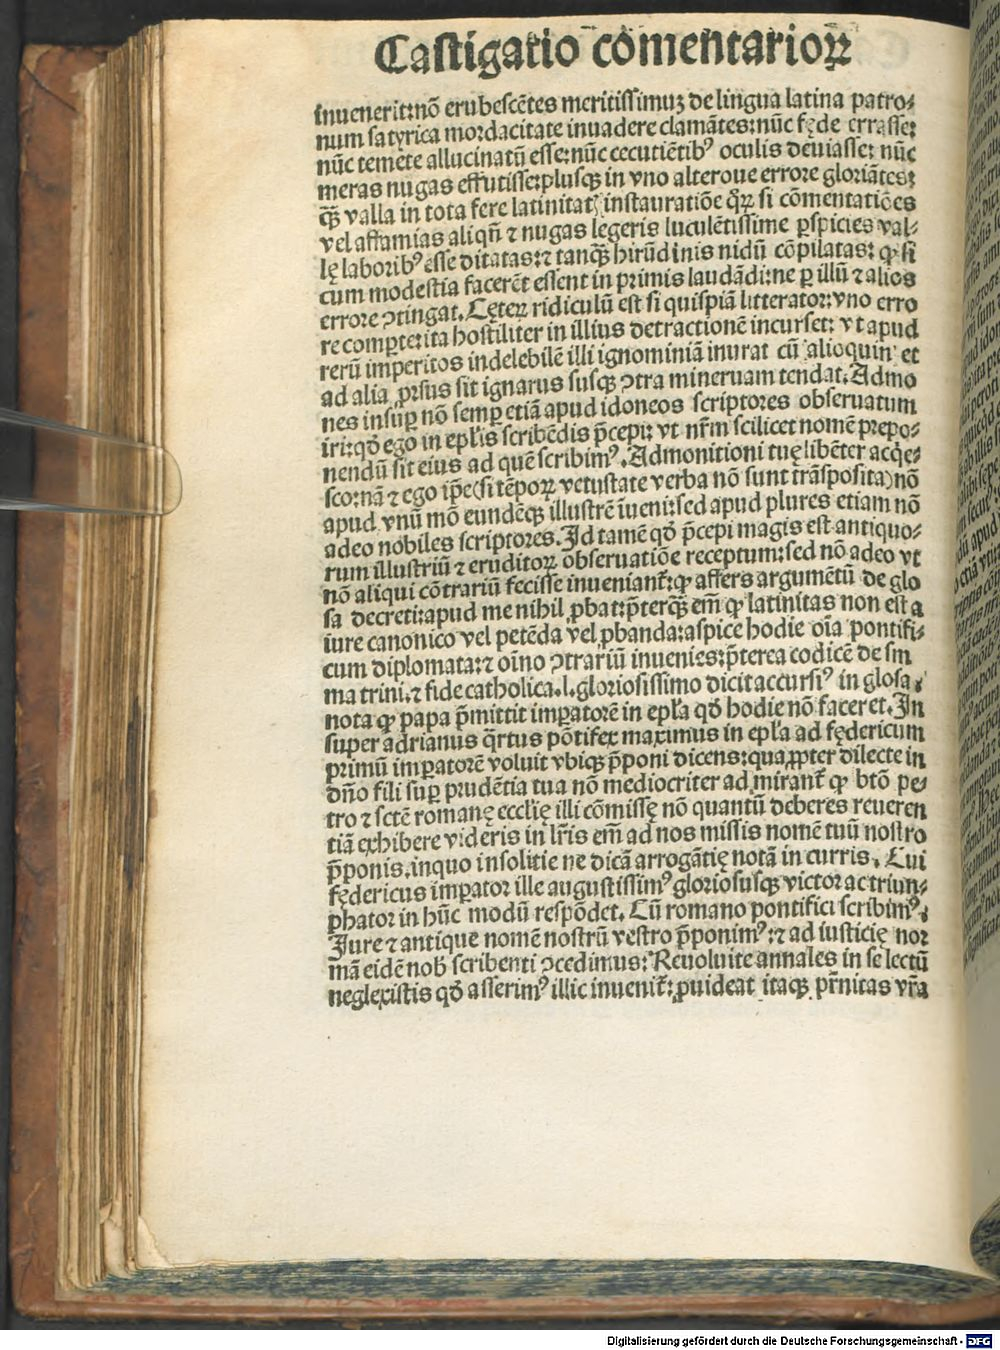 Castigatio cōmentarioꝝ
inuenerit:nō erubescētes meritissimuʒ de lingua latina patro⸗
num satyrica mordacitate inuadere clamātes:nūc fęde errasse:
nūc temere allucinatū esse:nūc cecutiētibꝰ oculis deuiasse: nūc
meras nugas effutisse:plusqꝫ in vno alteroue errore gloriātes:
qꝫ̄ valla in tota fere latinitatꝭ instauratiōe qr̄ꝝ si cōmentatiōes
vel affamias aliqn̄ ⁊ nugas legeris luculētissime ꝑspicies val⸗
lę laboribꝰ esse ditatas:⁊ tanqꝫ̄ hirūdinis nidū cōpilatas: ꝙ si
cum modestia facerēt essent in primis laudādi:ne ꝑ illū ⁊ alios
errore ꝯtingat. Cęteꝝ ridiculū est si quispiā litterator:vno erro
re comꝑte:ita hostiliter in illius detractionē incurset: vt apud
rerū imperitos indelebilē illi ignominiā inurat cū alioquin et
ad alia ꝓrsus sit ignarus susqꝫ ꝯtra mineruam tendat. Admo
nes insuꝑ nō semꝑ etiā apud idoneos scriptores obseruatum
iri:qđ ego in epl̄is scribēdis p̄cepi: vt nr̄m scilicet nomē prepo⸗
nendū sit eius ad quē scribimꝰ. Admonitioni tuę libēter acq̇e⸗
sco:nā ⁊ ego ip̄e(si tēpoꝝ vetustate verba nō sunt trāsposita)nō
apud vnū mō eundēqꝫ illustrē iueni:sed apud plures etiam nō
adeo nobiles scriptores. Id tamē qđ p̄cepi magis est antiquo⸗
rum illustriū ⁊ eruditoꝝ obseruatiōe receptum:sed nō adeo vt
nō aliqui cōtrariū fecisse inueniant̄:ꝙ affers argumētū de glo
sa decreti:apud me nihil ꝓbat:p̄terqꝫ̄ em̄ ꝙ latinitas non est a
iure canonico vel petēda vel ꝓbanda:aspice hodie oīa pontifi⸗
cum diplomata:⁊ oīno ꝯtrariū inuenies:p̄terea codicē de sm
ma trini.⁊ fide catholica.l.gloriosissimo dicit accursiꝰ in glosa:
nota ꝙ papa p̄mittit imꝑatorē in epl̄a qđ hodie nō faceret. In
super adrianus q̄rtus pōtifex maximus in epl̄a ad fędericum
primū imꝑatorē voluit vbiqꝫ p̄poni dicens:quaꝓpter dilecte in
dn̄o fili suꝑ prudētia tua nō mediocriter ad mirant̄ ꝙ btō pe⸗
tro ⁊ sctē romanę ecclię illi cōmissę nō quantū deberes reueren
tiā exhibere videris in lr̄is em̄ ad nos missis nomē tuū nostro
p̄ponis.inquo insolitie ne dicā arrogātię notā in curris. Cui
fędericus imꝑator ille augustissimꝰ gloriosusqꝫ victor ac triun⸗
phator in hūc modū respōdet. Cū romano pontifici scribimꝰ:
Iure ⁊ antique nomē nostrū vestro p̄ponimꝰ:⁊ ad iusticię nor
mā eidē nob̄ scribenti ꝯcedimus: Reuoluite annales in se lectū
neglexistis qđ asserimꝰ illic inuenit̄:ꝓuideat itaqꝫ pr̄nitas vr̄a
Digitalisierung gefördert durch die Deutsche Forschungsgemeinschaft - DFG